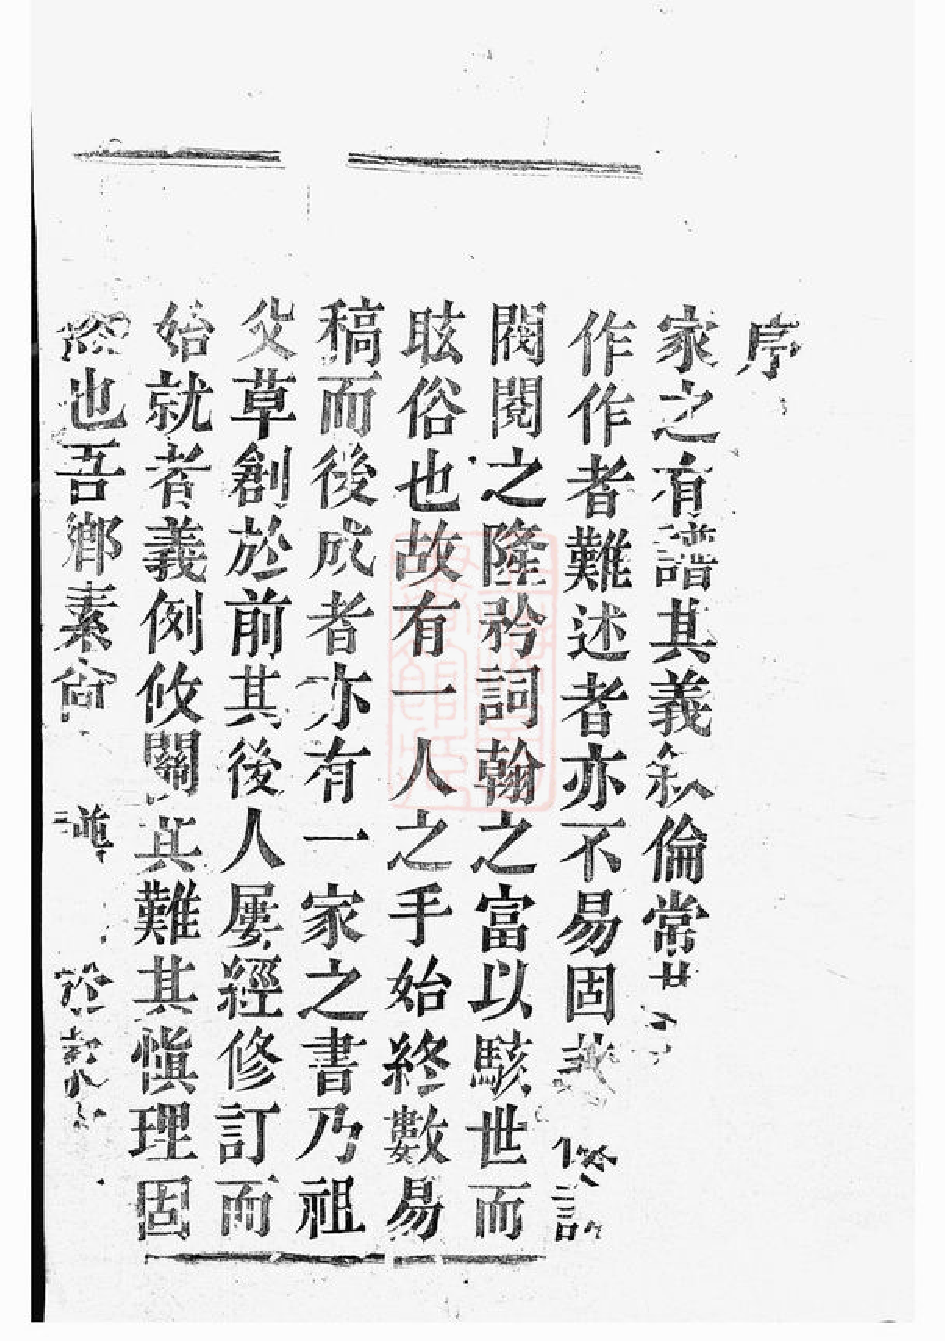 序
家之有譜其義叙倫常其
作作者難述者亦不易固
閥閱之隆矜詞翰之富以駭世而
眩俗也故有一人之手始終數易
稿而後成者亦有一家之書乃祖
父草創於前其後人屢經修訂而
始就者義例攸關其難其慎理固
然也吾鄉素尚譜